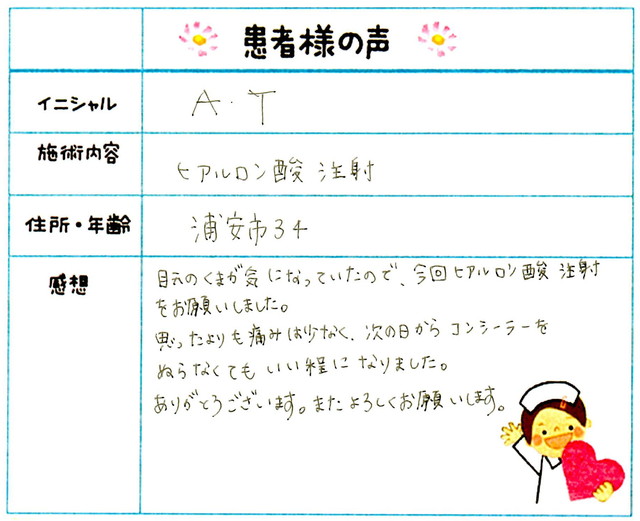 患者様の声
イニシャル
A・T
施術内容
ヒアルロン酸 注射
住所・年齢
浦安市34
感想
目元のくまが気になっていたので、今回ヒアルロン酸 注射
をお願いしました。
思ったよりも痛みは少なく、次の日からコンシーラーを
ぬらなくてもいい程になりました。
ありがとうございます。またよろしくお願いします。